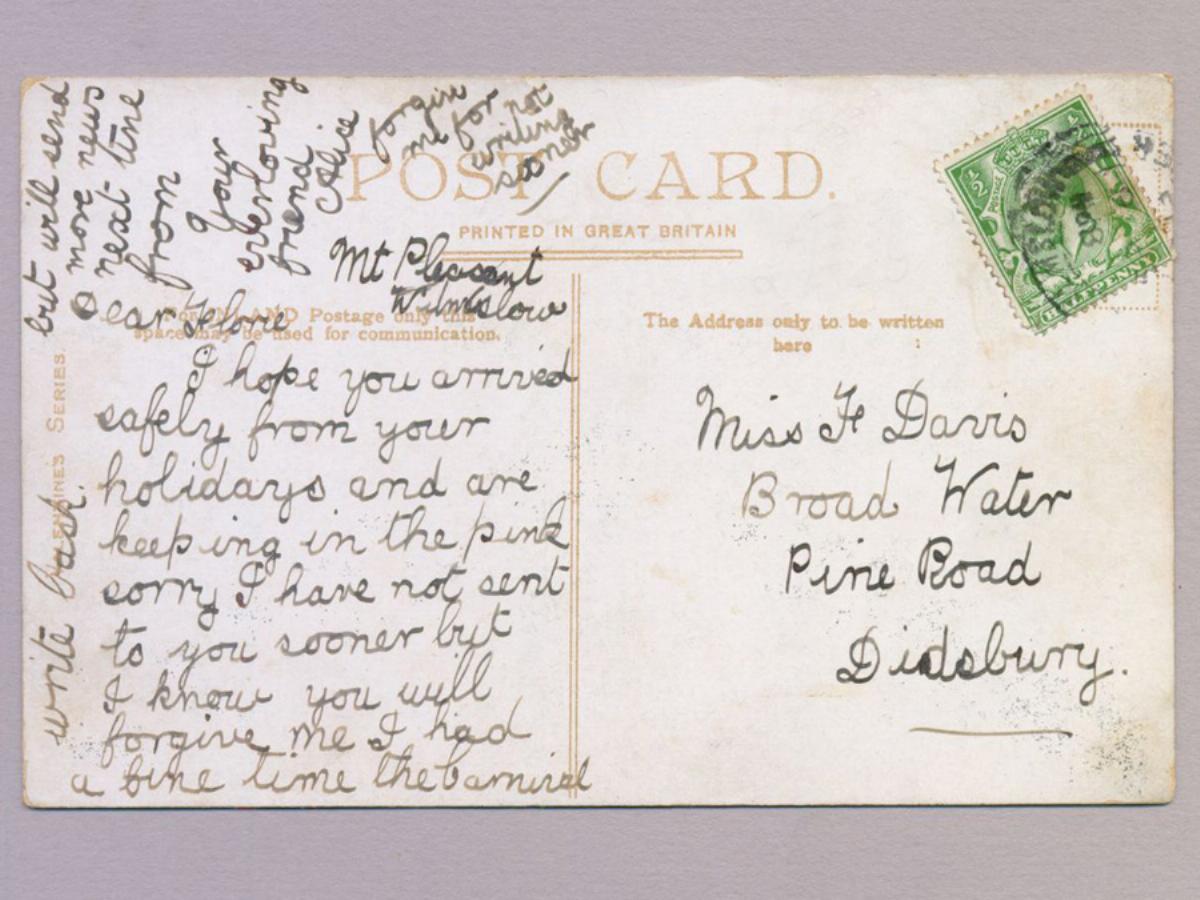 POST CARD.
PRINTED IN GREAT BRITAIN
For INLAND Postage only this
space may be used for communication.
The Address only to be written
here
SERIES.
Mt Pleasant
Wilmslow
Dear Florie
I hope you arrived
safely from your
holidays and are
keeping in the pink
sorry I have not sent
to you sooner but
I know you will
forgive me I had
a fine time the Carnival
write back
but will send
more news
next time
from
Your
everloving
friend
Alice
forgive
me for not
writing
sooner
Miss F Davis
Broad Water
Pine Road
Didsbury.
½
½
HALFPENNY